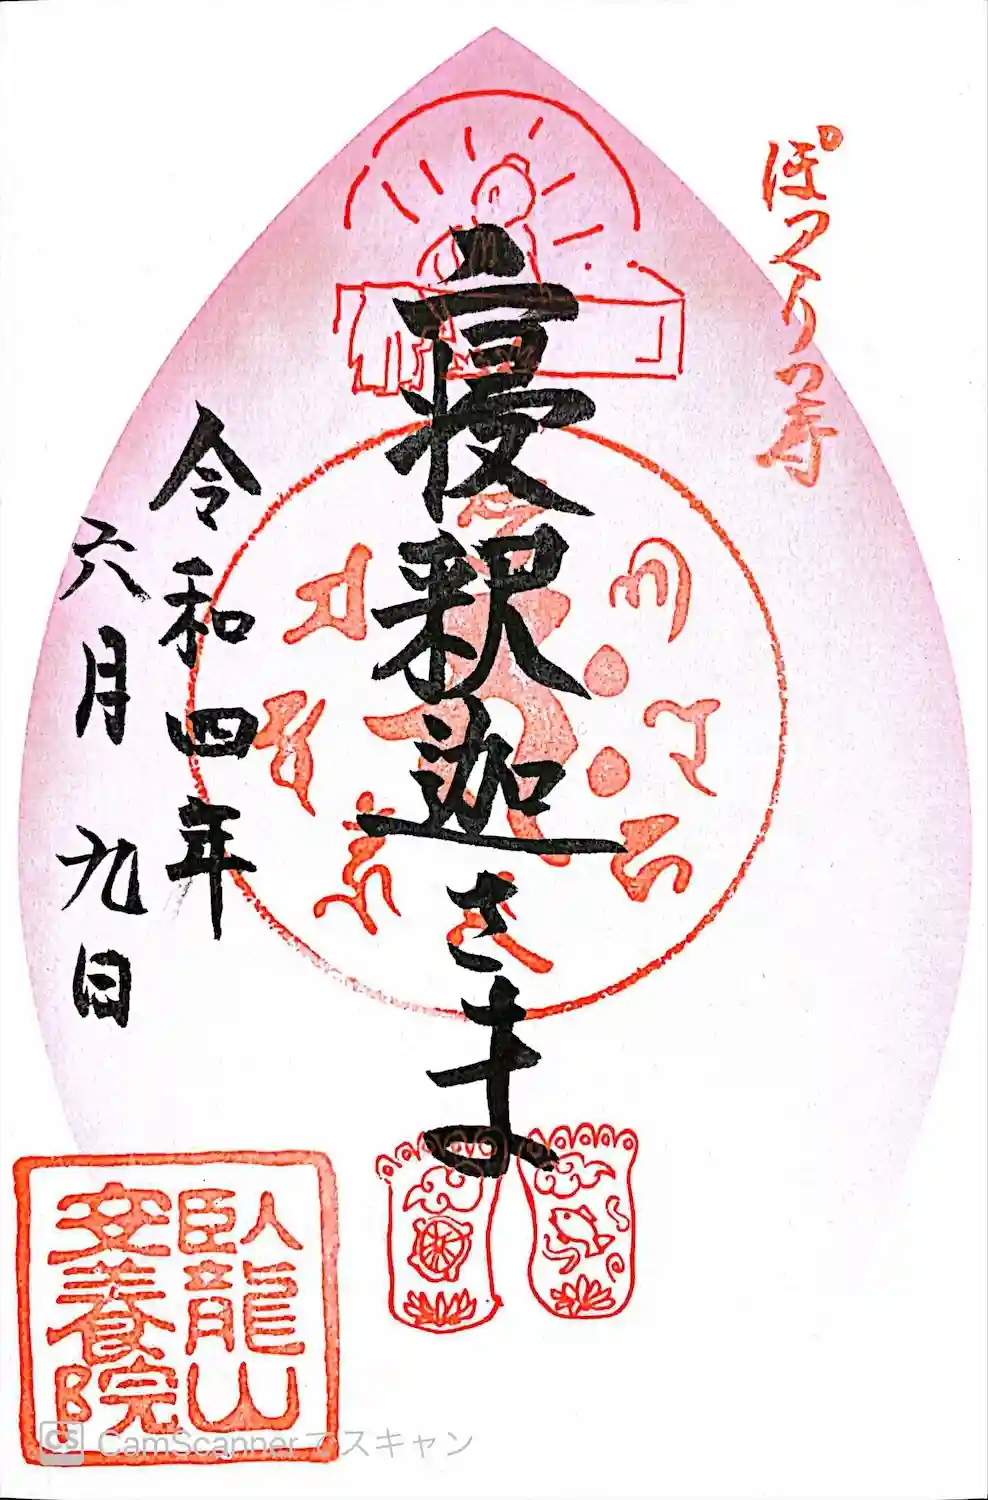 ぽっくりっ寺
寝釈迦さま
令和四年
六月九日
臥龍山
安養院
CS CamScannerでスキャン